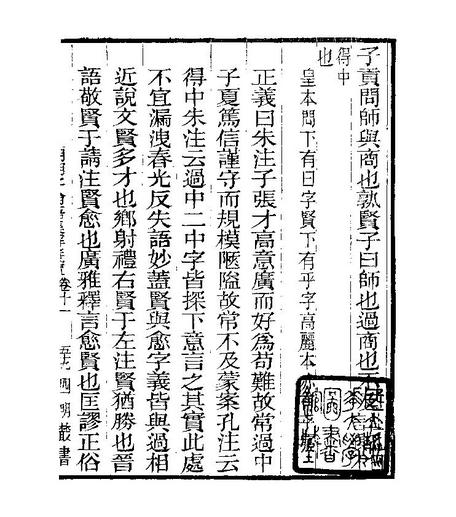 子貢問師與商也孰賢子曰師也過商也不
得中
也
皇本問下有曰字賢下有乎字高麗本
正義曰朱注子張才高意廣而好為苟難故常過中
子夏篤信謹守而規模隘故常不及蒙案孔注云
得中朱注云過中二中字皆探下意言之其實此處
不宜漏洩春光反失語妙蓋賢與愈字義皆與過相
近說文賢多才也鄉射禮右賢于左注賢猶勝也晉
語敬賢于請注賢愈也廣雅釋言愈賢也匡謬正俗
卷十一
四明叢書